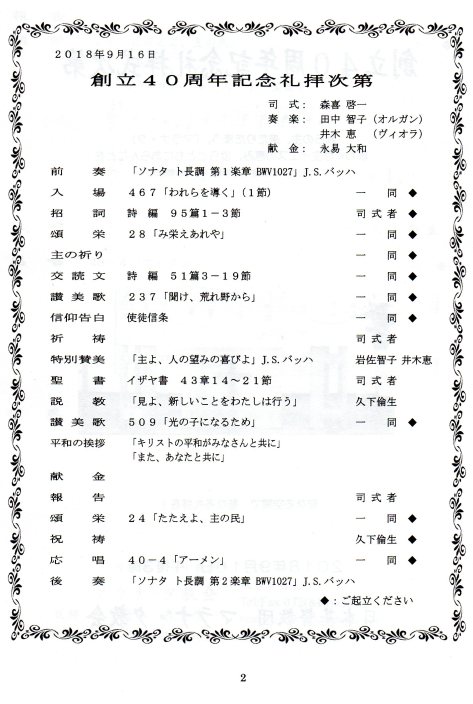 2018年9月16日
創立40周年記念礼拝次第
司 式: 森喜 啓一
奏 楽: 田中 智子(オルガン)
井木 恵 (ヴィオラ)
献 金: 永易 大和
前 奏 「ソナタ ト長調 第1楽章 BWV1027」J.S.バッハ
入 場 467「われらを導く」(1節) 一 同 ◆
招 詞 詩 編 95篇1-3節 司 式 者 ◆
頌 栄 28「み栄えあれや」 一 同 ◆
主の祈り 一 同 ◆
交 読 文 詩 編 51篇3-19節 一 同 ◆
讃 美 歌 237「聞け、荒れ野から」 一 同 ◆
信仰告白 使徒信条 一 同 ◆
祈 祷 司 式 者
特別賛美 「主よ、人の望みの喜びよ」J.S.バッハ 岩佐智子 井木恵
聖 書 イザヤ書 43章14~21節 司 式 者
説 教 「見よ、新しいことをわたしは行う」 久下倫生
讃 美 歌 509「光の子になるため」 一 同 ◆
平和の挨拶 「キリストの平和がみなさんと共に」
「また、あなたと共に」
献 金
報 告 司 式 者
頌 栄 24「たたえよ、主の民」 一 同 ◆
祝 祷 久下倫生 ◆
応 唱 40-4「アーメン」 一 同 ◆
後 奏 「ソナタ ト長調 第2楽章 BWV1027」J.S.バッハ
◆:ご起立ください
2